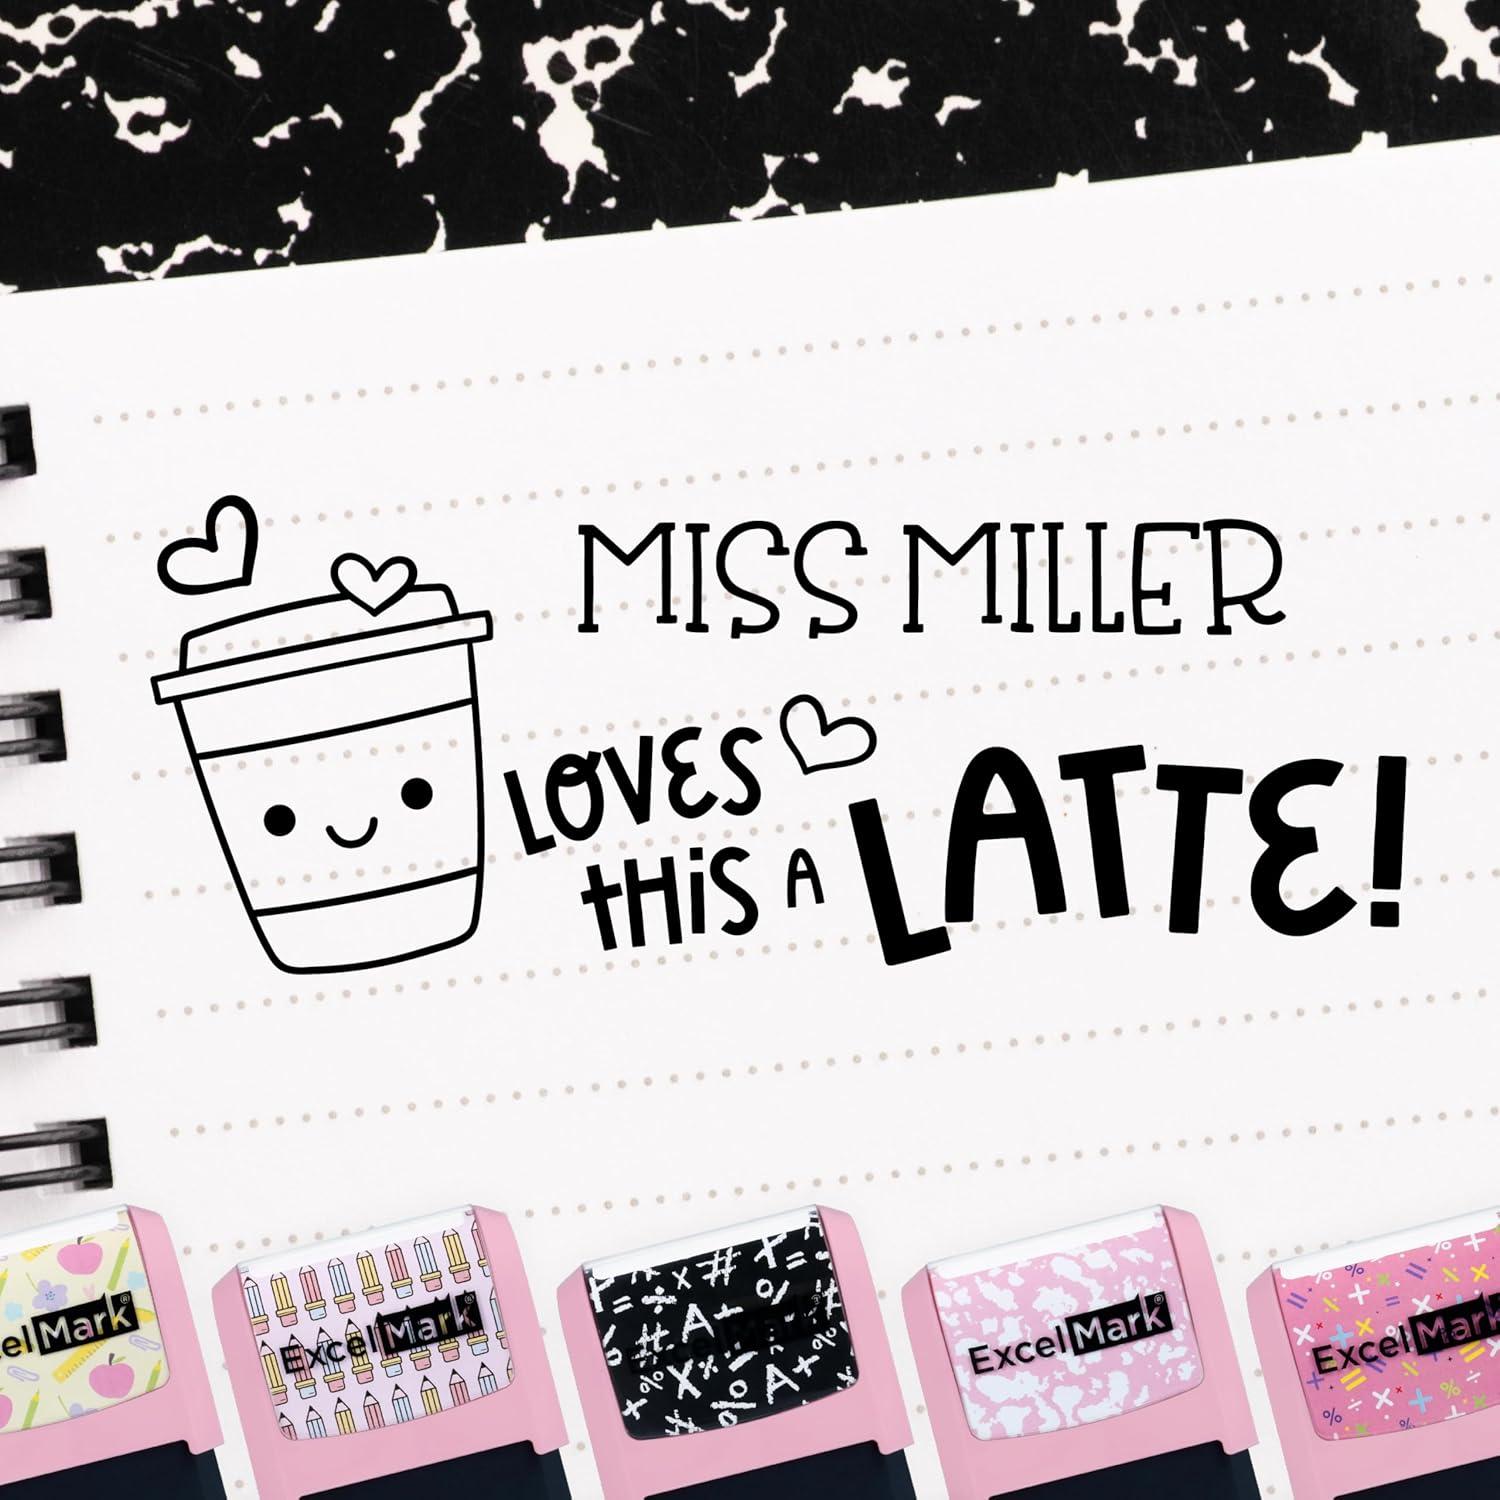 MISS MILLER
LOVES
THIS A LATTE!
ExcelMark®
ExcelMark®
ExcelMark
ExcelMark®
ExcelMark